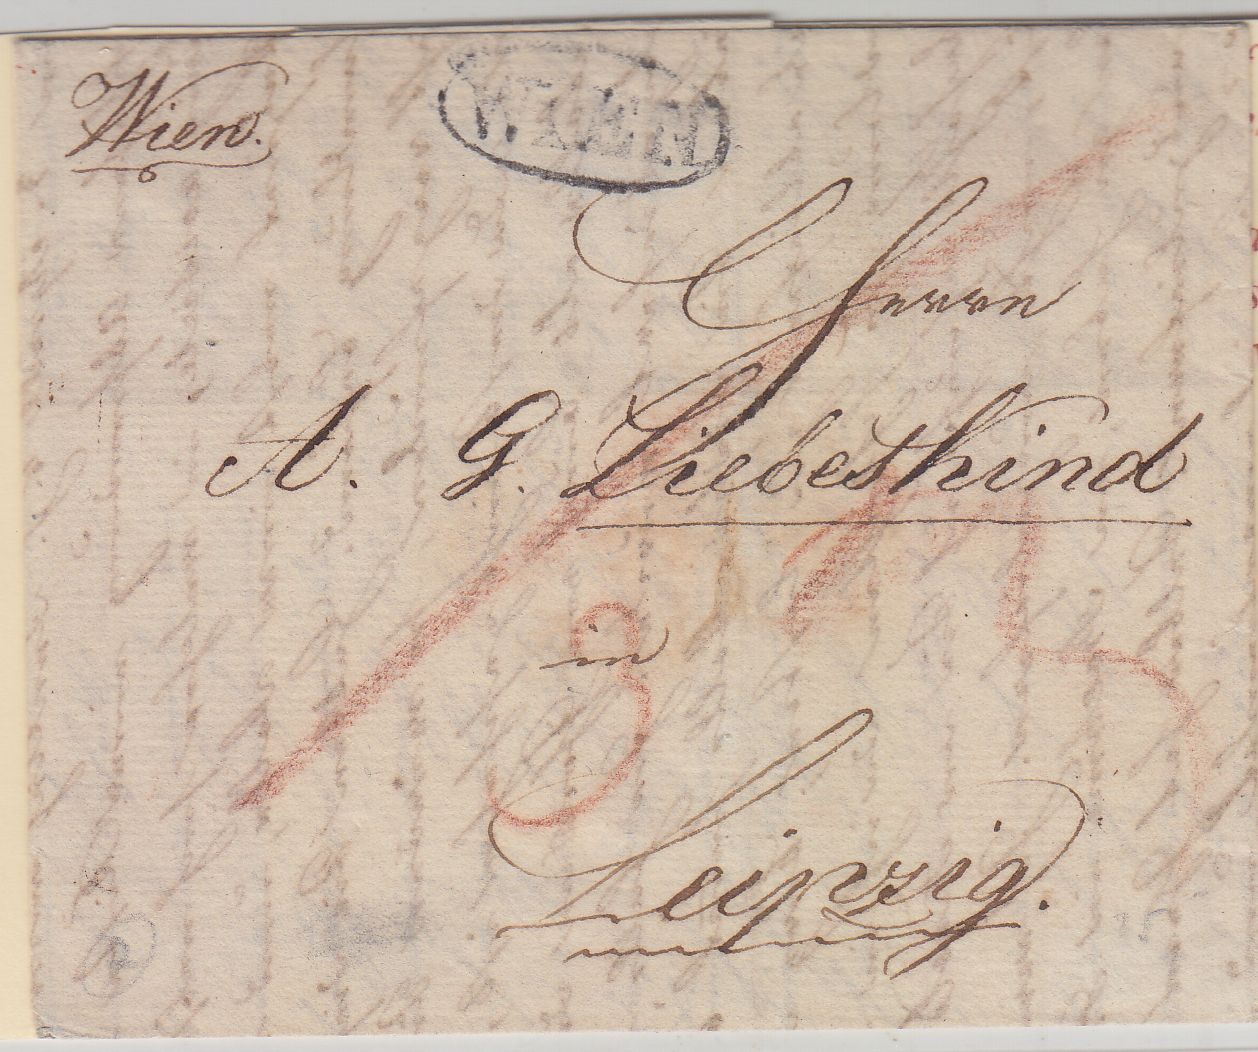 Wien.
WIEN
Herrn
A. G. Liebeskind
in
3
Leipzig.